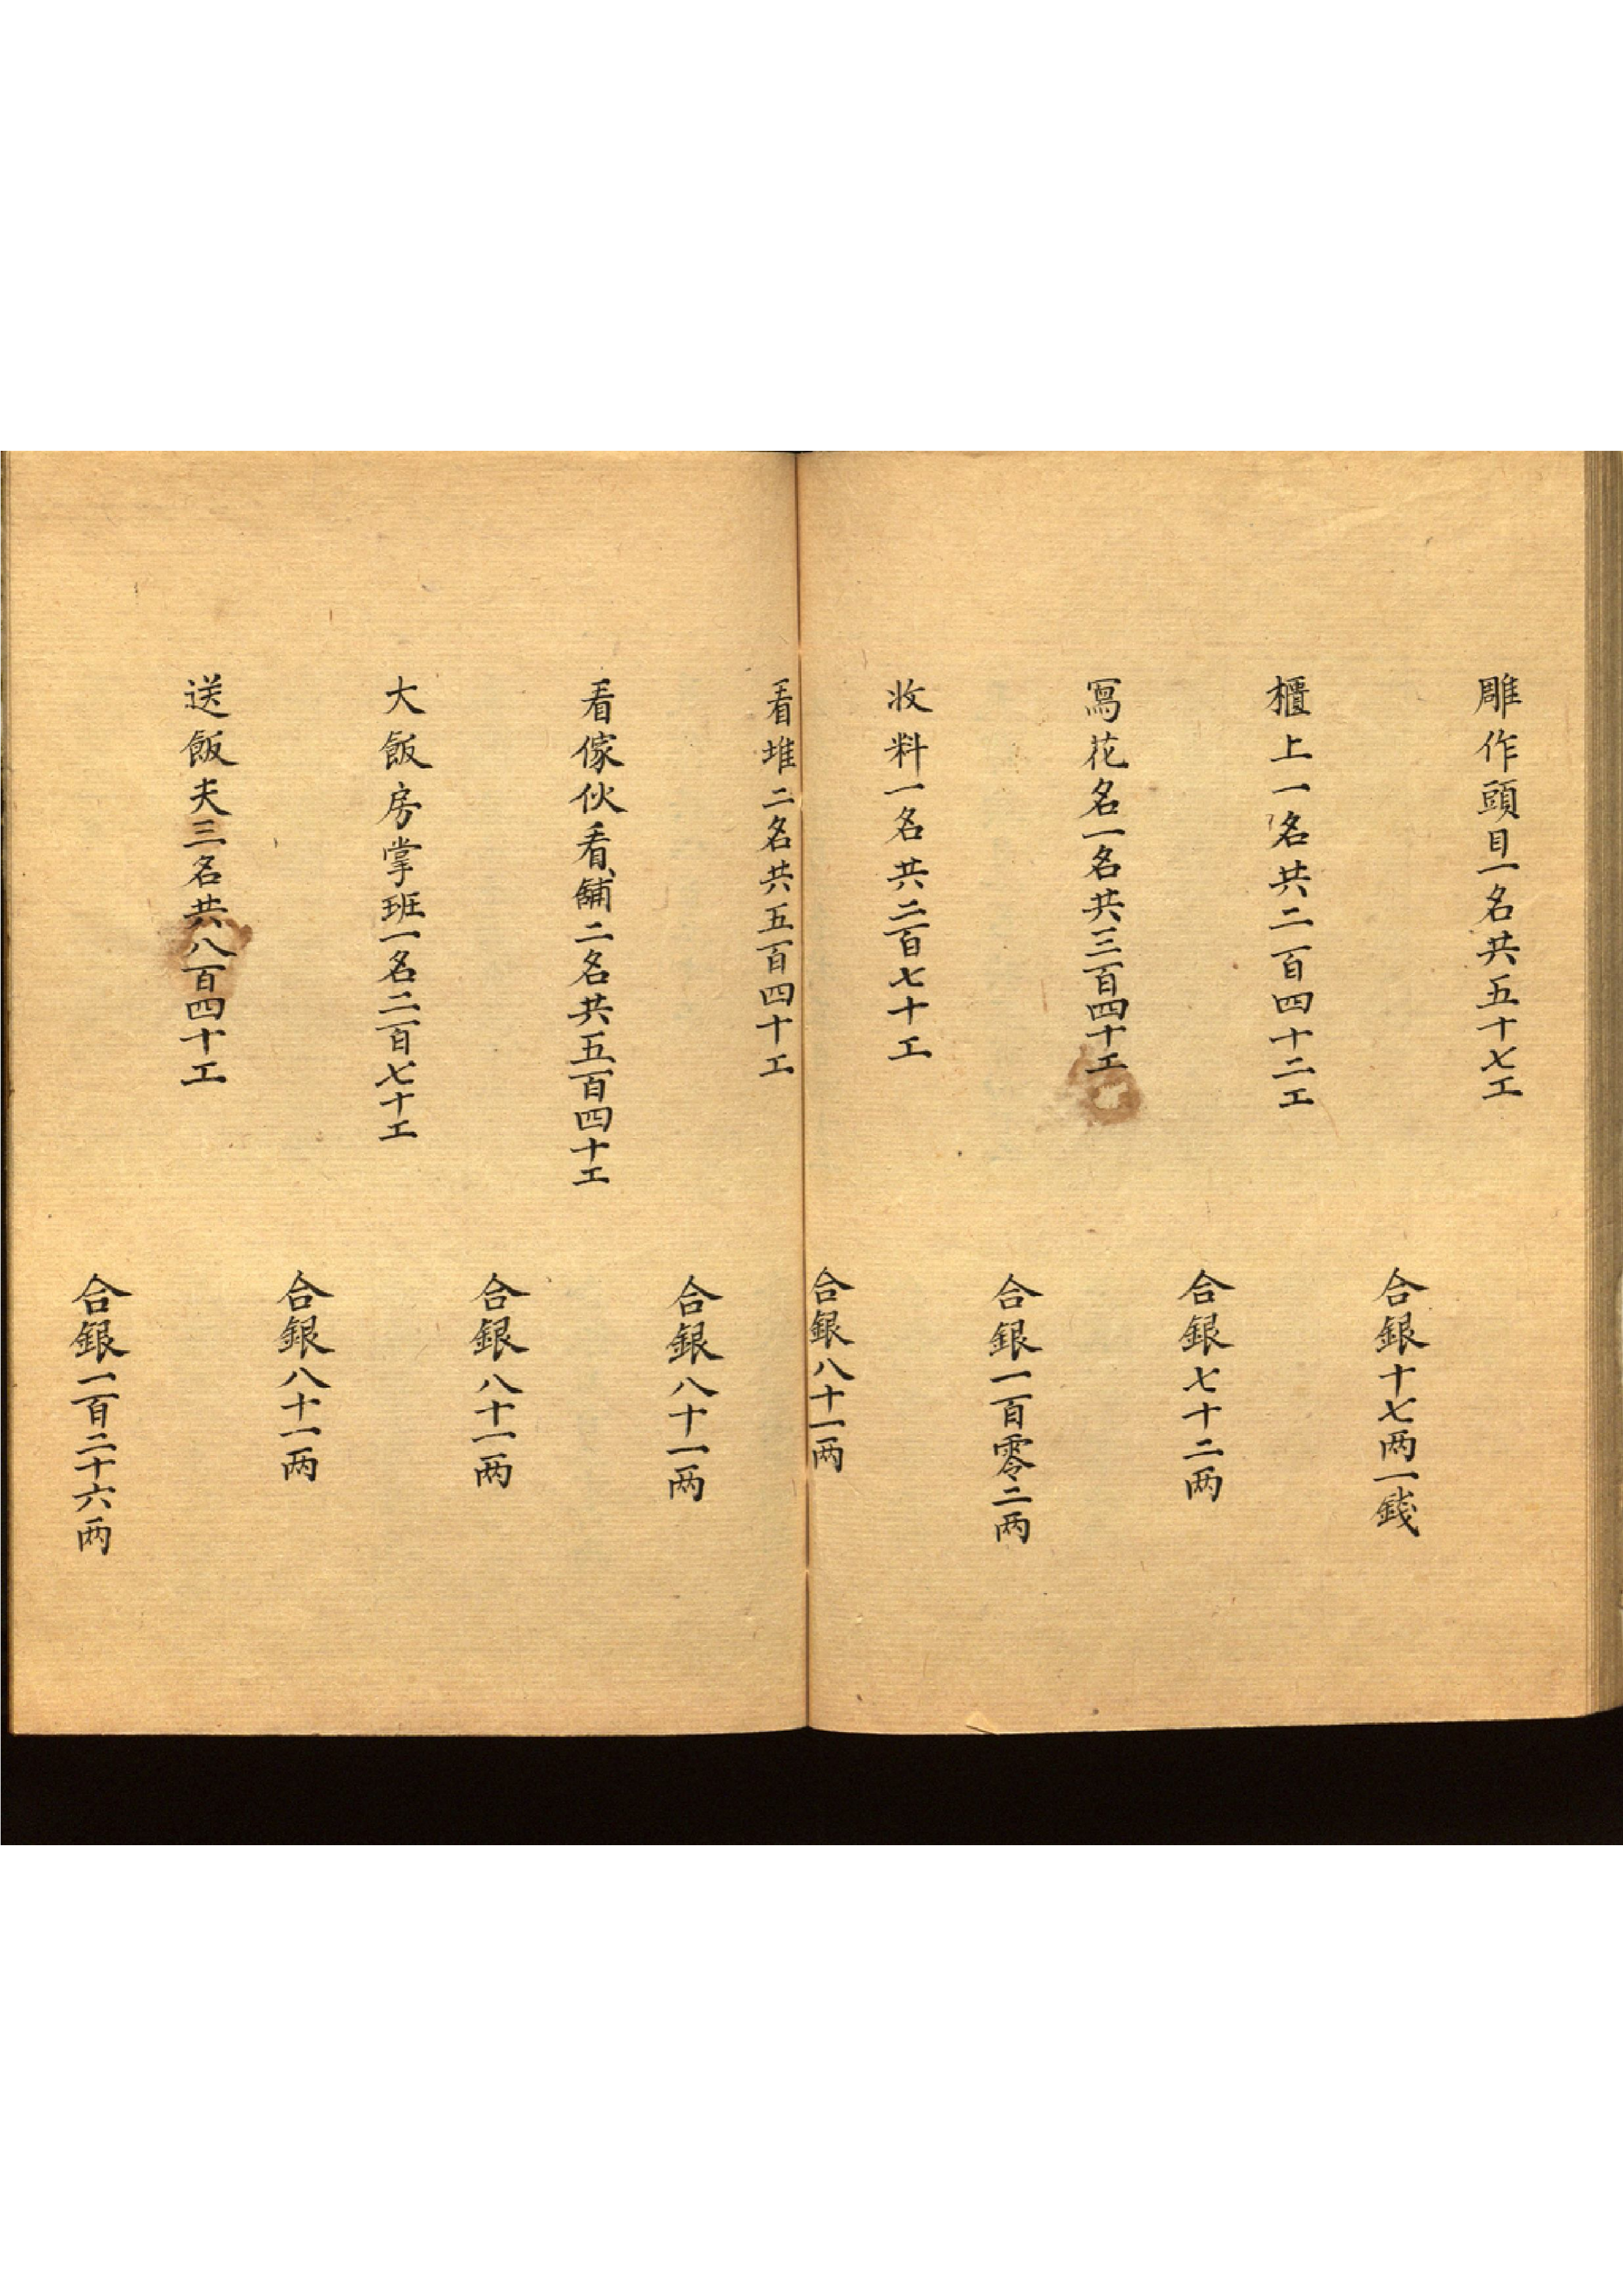 雕作頭目一名共五十七工
合銀十七两一錢
櫃上一名共二百四十二工
合銀七十二两
寫花名一名共三百四十工
合銀一百零二两
收料一名共二百七十工
合銀八十一两
看堆二名共五百四十工
合銀八十一两
看傢伙看舖二名共五百四十工
合銀八十一两
大飯房掌班一名二百七十工
合銀八十一两
送飯夫三名共八百四十工
合銀一百二十六两